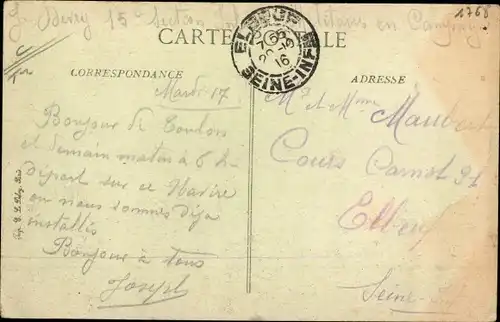 15e Section
en Campagne
1768
CARTE POSTALE
ELBEUF
20-12
16
SEINE-INFRE
CORRESPONDANCE
ADRESSE
Mardi 17
Bonjour de Toulon
et demain matin à 6 h
Départ sur ce Navire
ou nous sommes déja
installés
Bonjour à tous
Joseph
Mr et Mme
Maubert
Cours Carnot 91
Elbeuf
Seine-Inf